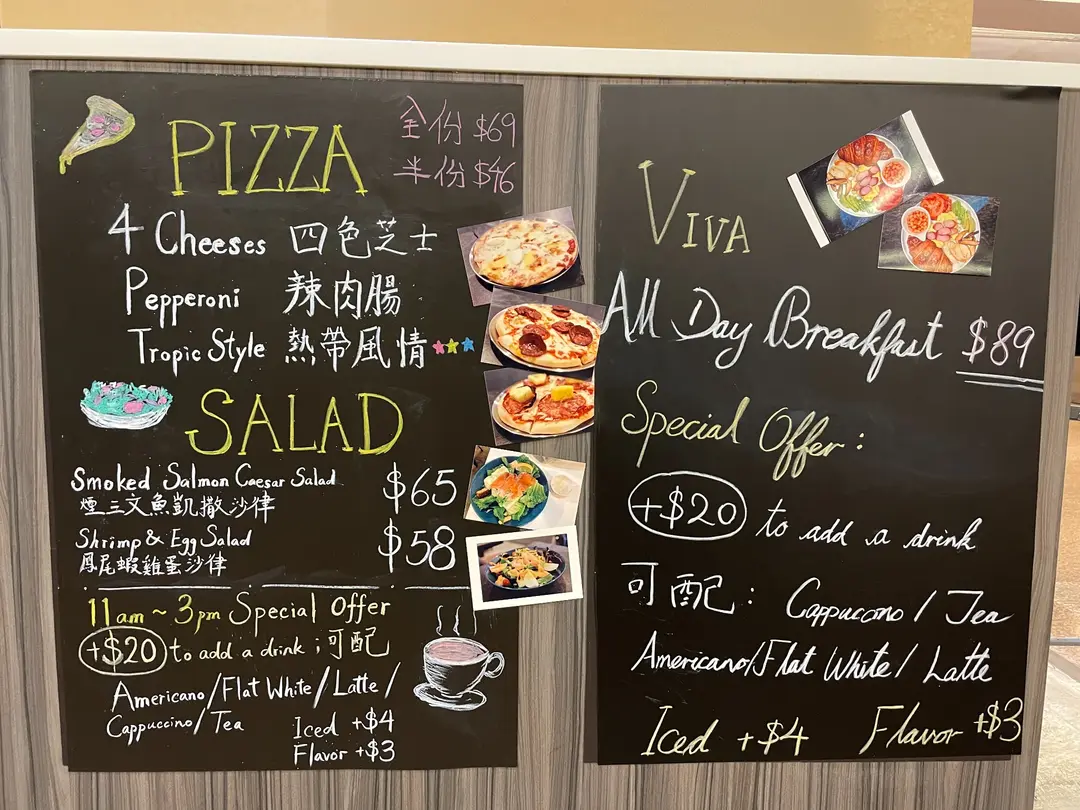 PIZZA
全份 $69
半份 $46
4 Cheeses 四色芝士
Pepperoni 辣肉腸
Tropic Style 熱帶風情
SALAD
Smoked Salmon Caesar Salad $65
煙三文魚凱撒沙律
Shrimp & Egg Salad $58
鳳尾蝦雞蛋沙律
11am ~ 3pm Special Offer
+$20 to add a drink ; 可配
Americano/Flat White/Latte/
Cappuccino/Tea
Iced +$4
Flavor +$3
VIVA
All Day Breakfast $89
Special Offer:
+$20 to add a drink
可配: Cappuccino/Tea
Americano/Flat White/Latte
Iced +$4 Flavor +$3